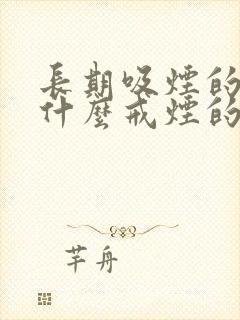 長期吸煙的
什麼戒煙的
芊舟